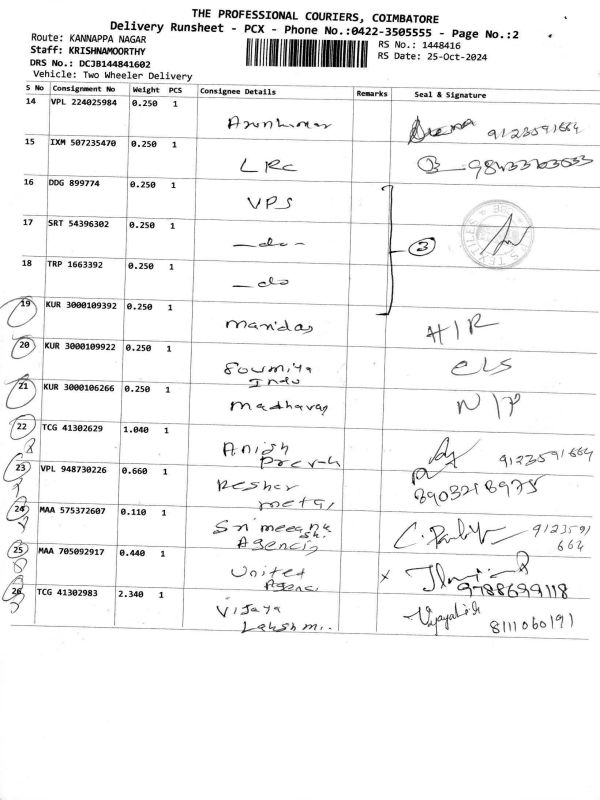 THE PROFESSIONAL COURIERS, COIMBATORE
Delivery Runsheet - PCX - Phone No.:0422-3505555 - Page No.:2
Route: KANNAPPA NAGAR
RS No.: 1448416
Staff: KRISHNAMOORTHY
RS Date: 25-Oct-2024
DRS No.: DCJB144841602
Vehicle: Two Wheeler Delivery
S No Consignment No Weight PCS Consignee Details Remarks Seal & Signature
14 VPL 224025984 0.250 1
Arunkumar 9123591664
15 IXM 507235470 0.250 1
LRC
16 DDG 899774 0.250 1
VPS
17 SRT 54396302 0.250 1
—do— 3
18 TRP 1663392 0.250 1
—do
19 KUR 3000109392 0.250 1
Maridas H/R
20 KUR 3000109922 0.250 1
Soumita CLS
Indu
21 KUR 3000106266 0.250 1
Madhavan N/P
22 TCG 41302629 1.040 1
Anish 9123591664
23 VPL 948730226 0.660 1
8903218975
Metal
24 MAA 575372607 0.110 1
Sri Meenakshi 9123591
Agencis 664
25 MAA 705092917 0.440 1
United
Agenci 9788699118
26 TCG 41302983 2.340 1
Vijaya Vijayalakshmi
Lakshmi. 8111060191